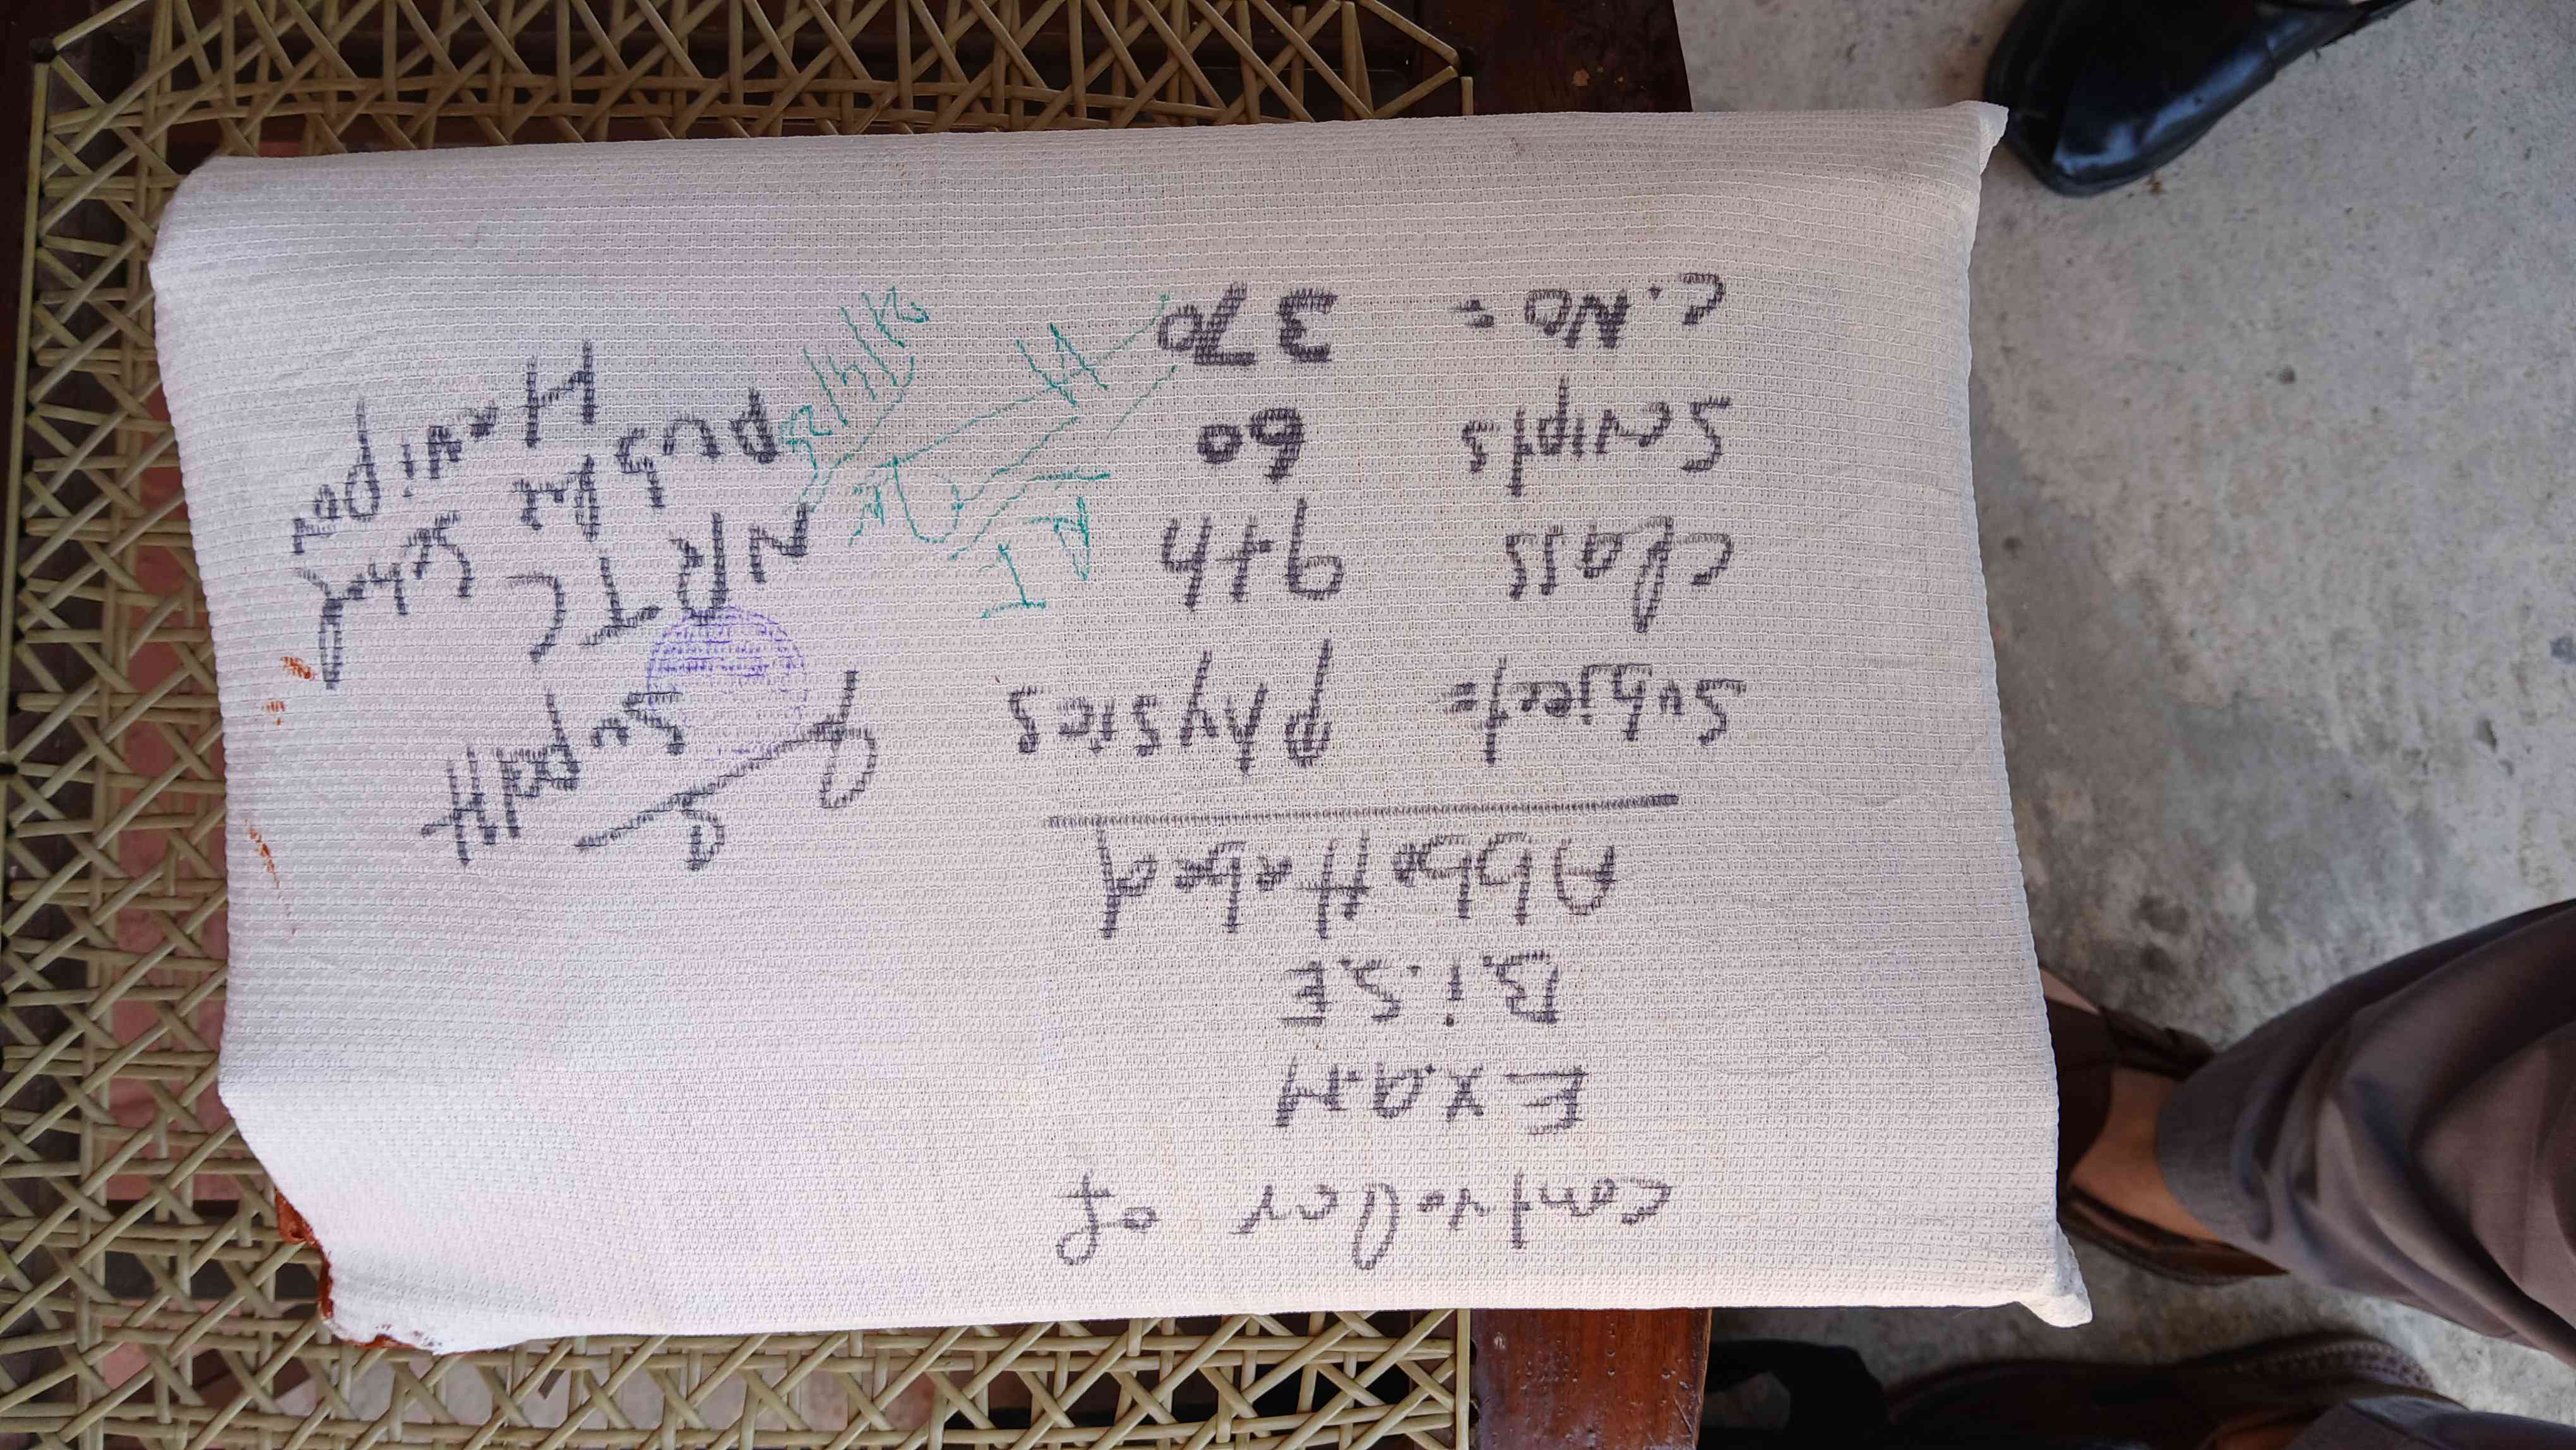 controller of
EXAM
B.I.SE
AbboTTabad
Subject= physics
class 9th
Scripts 60
C.No= 370
Supdtt
NRTC
Haripur